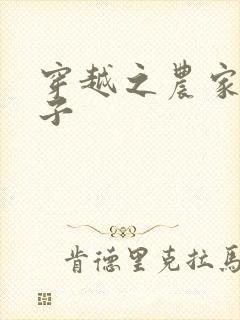 穿越之農家
子
肯德里克拉馬